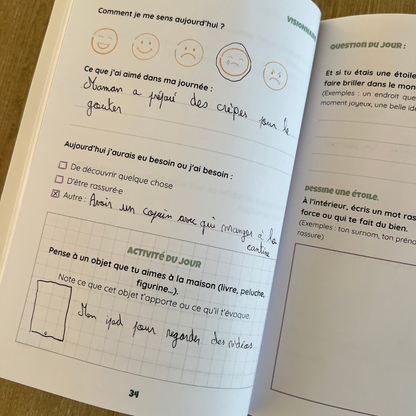 Comment je me sens aujourd'hui ?
Ce que j'ai aimé dans ma journée :
Maman a préparé des crêpes pour le
gouter
Aujourd'hui j'aurais eu besoin ou j'ai besoin :
De découvrir quelque chose
D'être rassuré·e
Autre : Avoir un copain avec qui manger à la
cantine
ACTIVITÉ DU JOUR
Pense à un objet que tu aimes à la maison (livre, peluche,
figurine...).
Note ce que cet objet t'apporte ou ce qu'il t'évoque.
Mon ipad pour regarder des vidéos
34
QUESTION DU JOUR :
Et si tu étais une étoile
faire briller dans le mon
(Exemples : un endroit que
moment joyeux, une belle idé
DESSINE UNE ÉTOILE.
À l'intérieur, écris un mot ras
force ou qui te fait du bien.
(Exemples : ton surnom, ton préno
rassure)